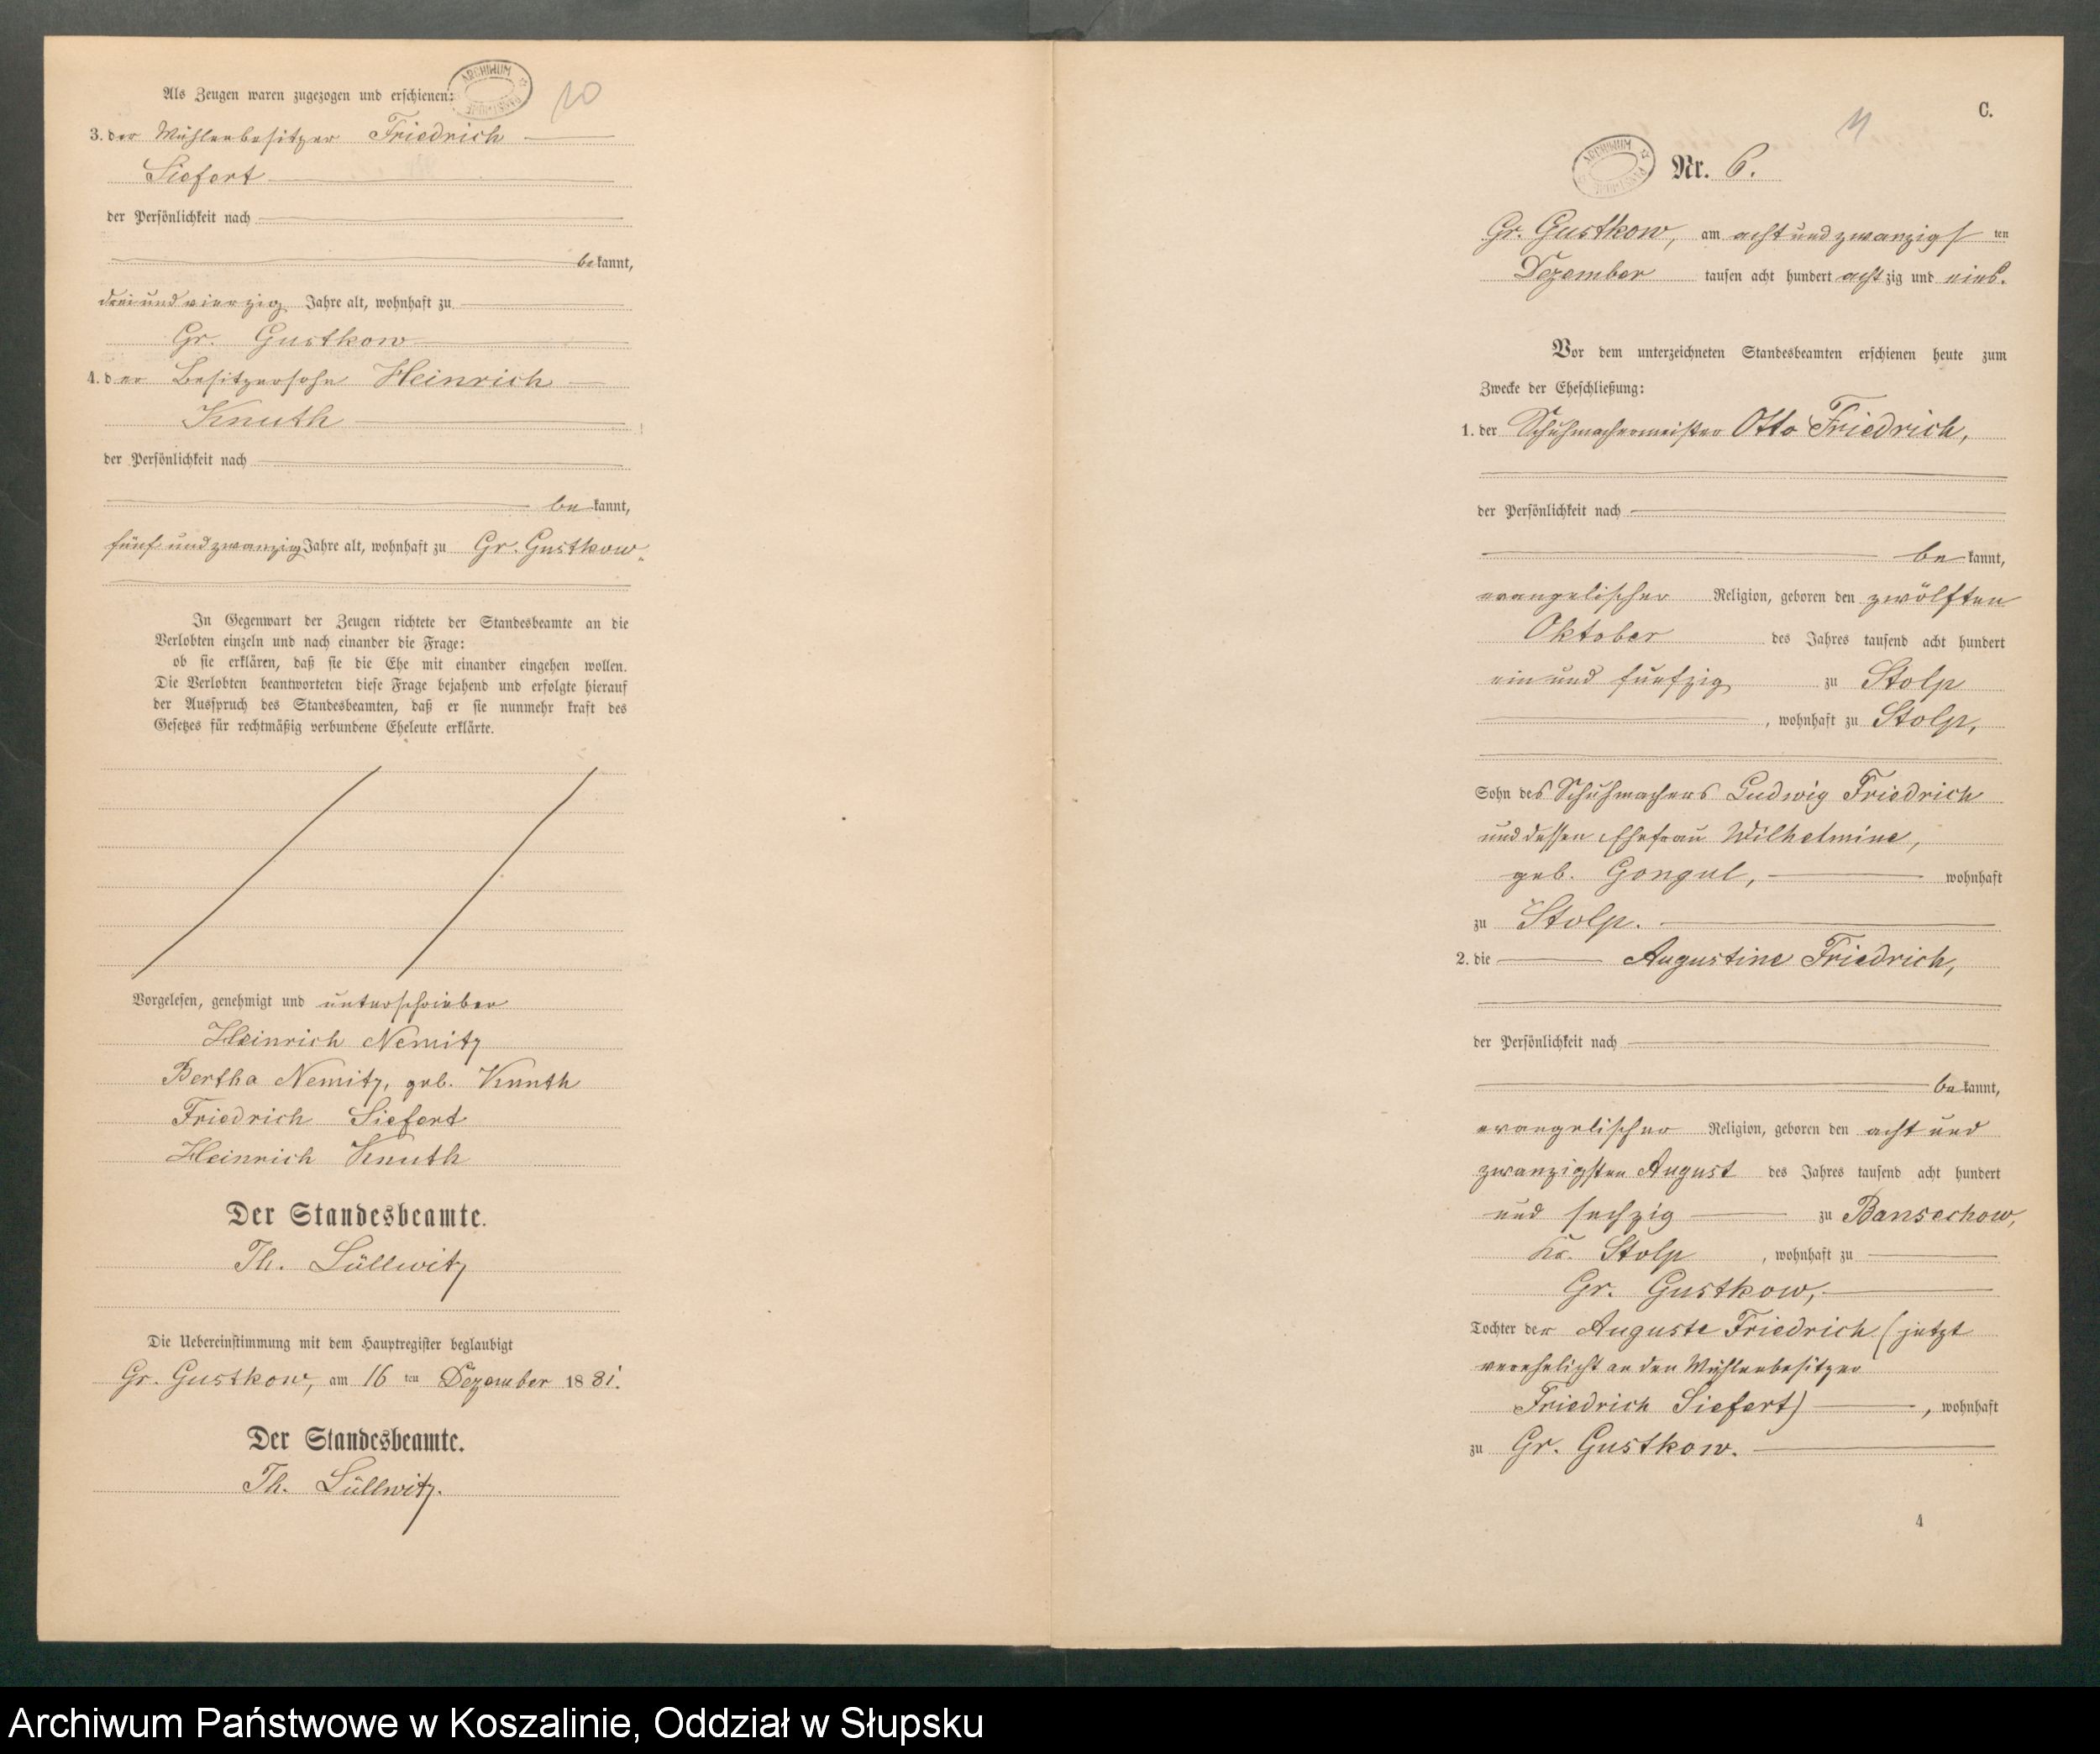 Als Zeugen waren zugezogen und erschienen:
10
3. der Mühlenbesitzer Friedrich
Siefert
der Persönlichkeit nach
bekannt,
drei und vierzig Jahre alt, wohnhaft zu
Gr. Gustkow
4. der Besitzersohn Heinrich
Knuth
der Persönlichkeit nach
be kannt,
fünf und zwanzig Jahre alt, wohnhaft zu Gr. Gustkow.
In Gegenwart der Zeugen richtete der Standesbeamte an die
Verlobten einzeln und nach einander die Frage:
ob sie erklären, daß sie die Ehe mit einander eingehen wollen.
Die Verlobten beantworteten diese Frage bejahend und erfolgte hierauf
der Ausspruch des Standesbeamten, daß er sie nunmehr kraft des
Gesetzes für rechtmäßig verbundene Eheleute erklärte.
Vorgelesen, genehmigt und unterschrieben
Heinrich Nemitz
Bertha Nemitz, geb. Knuth
Friedrich Siefert
Heinrich Knuth
Der Standesbeamte.
Th. Lüllwitz
Die Uebereinstimmung mit dem Hauptregister beglaubigt
Gr. Gustkow, am 16 ten Dezember 1881.
Der Standesbeamte.
Th. Lüllwitz.
C.
11
ARCHIWUM
Nr. 6.
Gr. Gustkow, am acht und zwanzigsten
Dezember tausen acht hundert achtzig und eins.
Vor dem unterzeichneten Standesbeamten erschienen heute zum
Zwecke der Eheschließung:
1. der Schuhmachermeister Otto Friedrich,
der Persönlichkeit nach
be kannt,
evangelischer Religion, geboren den zwölften
Oktober des Jahres tausend acht hundert
ein und fünfzig zu Stolp
, wohnhaft zu Stolp,
Sohn des Schuhmachers Ludwig Friedrich
und dessen Ehefrau Wilhelmine,
geb. Gongul, wohnhaft
zu Stolp.
2. die Augustine Friedrich,
der Persönlichkeit nach
be kannt,
evangelischer Religion, geboren den acht und
zwanzigsten August des Jahres tausend acht hundert
und sechzig zu Bansechow,
Kr. Stolp , wohnhaft zu
Gr. Gustkow,
Tochter der Auguste Friedrich (jetzt
verehelicht an den Mühlenbesitzer
Friedrich Siefert) , wohnhaft
zu Gr. Gustkow.
4
Archiwum Państwowe w Koszalinie, Oddział w Słupsku